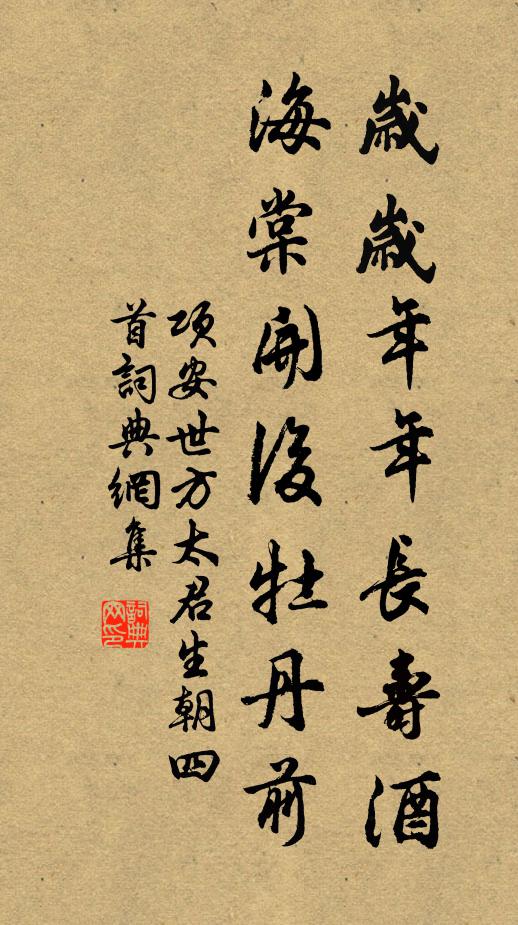 歲歲年年長壽酒
海棠開後牡丹前
項安世方太君生朝四
首詞典網集
詞典網印